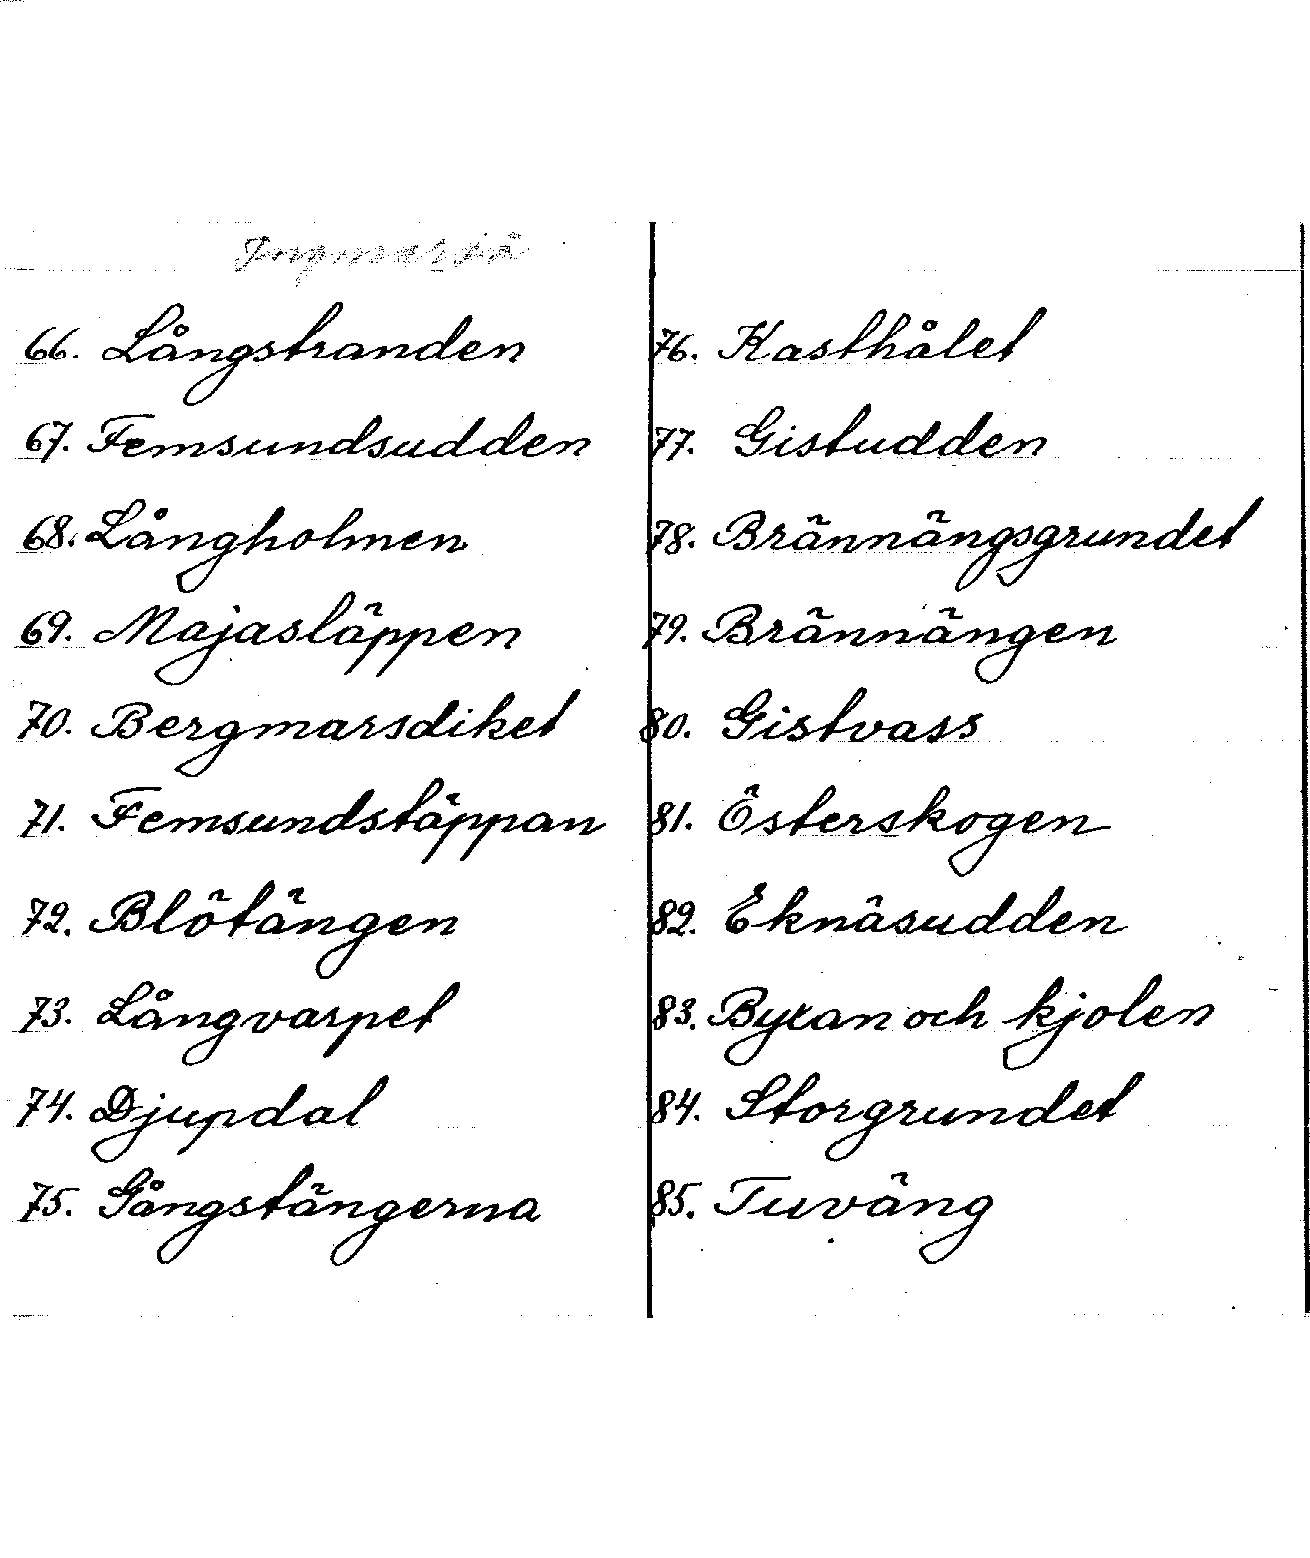 Ingmarsö
66. Långstranden
67. Femsundsudden
68. Långholmen
69. Majasläppen
70. Bergmarsdiket
71. Femsundstäppan
72. Blötängen
73. Långvarpet
74. Djupdal
75. Gångstängerna
76. Kasthålet
77. Gistudden
78. Brännängsgrundet
79. Brännängen
80. Gistvass
81. Österskogen
82. Eknäsudden
83. Byxan och kjolen
84. Storgrundet
85. Tuväng